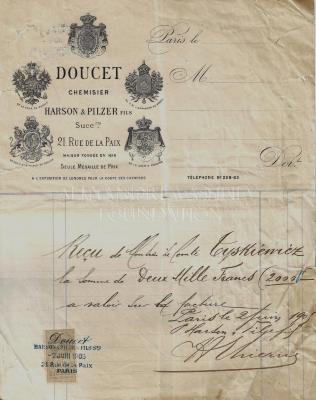 Paris le
M
DOUCET
CHEMISIER
HARSON & PILZER FILS
Succrs
21. RUE DE LA PAIX
MAISON FONDÉE EN
SEULE MÉDAILLE DE PRIX
A L'EXPOSITION DE LONDRES POUR LA COUPE DES CHEMISES
TÉLÉPHONE Nº 229-03
Doit
FOUNDATION
Reçu de Monsieur le Comte Tyskiewicz
la somme de Deux Mille Francs (2000
a valoir sur sa facture
Paris le 2 Juin
Harson & Pilzer fils
Doucet
HARSON & PILZER FILS
JUIN 1905
21 Rue de la Paix
PARIS